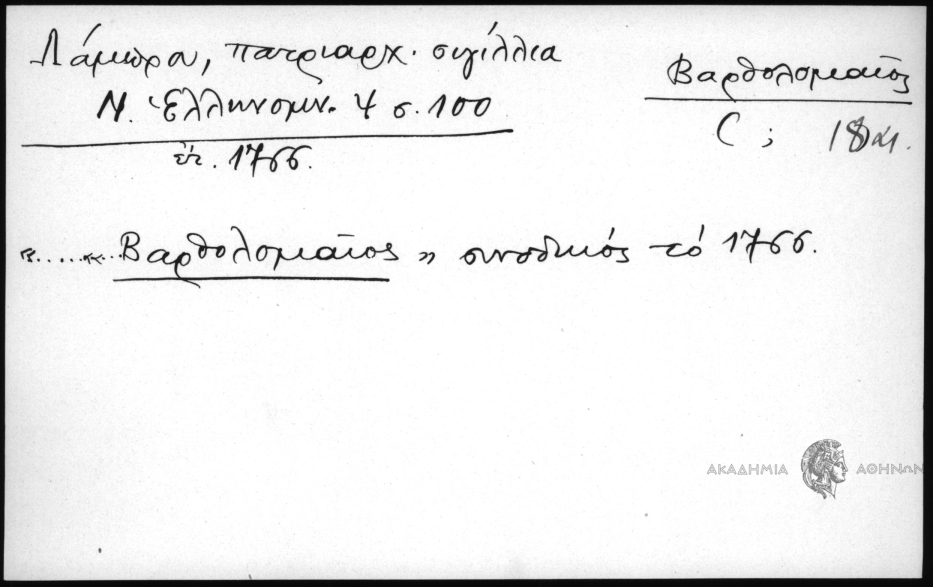 Λάμπρου, πατριαρχ. σιγίλλια
Ν. Ἑλληνομν. 4 σ. 100
ἐτ. 1766.
Βαρθολομαῖος
( ; 18 αι.
«......... Βαρθολομαῖος » συνοδικός τό 1766.
ΑΚΑΔΗΜΙΑ ΑΘΗΝΩΝ